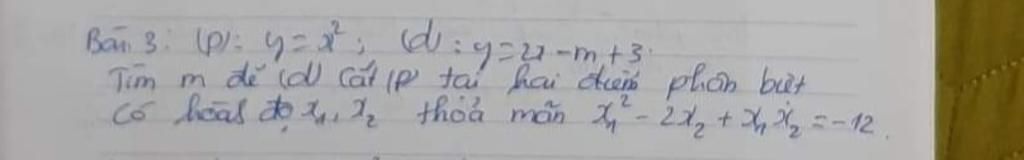 Bài 3: (P): y = x²; (d): y = 2x - m + 3.
Tìm m để (d) cắt (P) tại hai điểm phân biệt
có hoàs độ x₁, x₂ thỏa mãn x₁² - 2x₂ + x₁x₂ = -12.